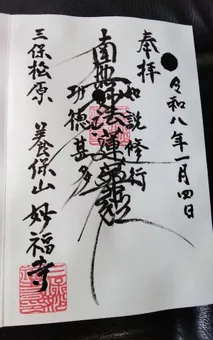 令和八年一月四日
奉拝
如説修行
南無妙法蓮華経
功徳甚多
三保松原 養保山 妙福寺